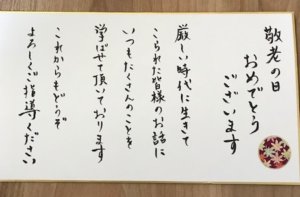 敬老の日
おめでとう
ございます
厳しい時代に生きて
こられた皆様のお話に
いつもたくさんのことを
学ばせて頂いております
これからもどうぞ
よろしくご指導ください